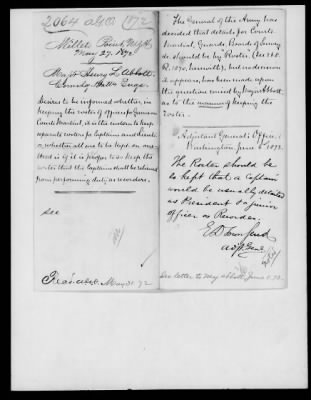 2064 AGO 1872
Willets Point, N.Y.H.
May 27, 1872.
Major Henry L. Abbott
Comdg. Batt. Engrs.
Desires to be informed whether, in
keeping the roster of officers for Garrison
Courts Martial, it is the custom to keep
separate rosters for Captains and Lieuts.
or whether all are to be kept on one.
And if it is proper to so keep the
roster that the Captains shall be relieved
from performing duty as recorders.
see
Rec'd. AGO May 31. 72
The General of the Army has
decided that details for Courts
Martial, Guards, Boards of Survey
&c should be by Roster
but no decision
it appears, has been made upon
the question raised by Major Abbott
as to the manner of keeping the
roster.
Adjutant General's Office,
Washington, June 1st 1872.
The Roster should be
so kept that a Captain
would be usually detailed
as President & a junior
officer as Recorder.
E D Townsend
Adj. Genl.
See letter to Maj Abbott, June 5. 72.